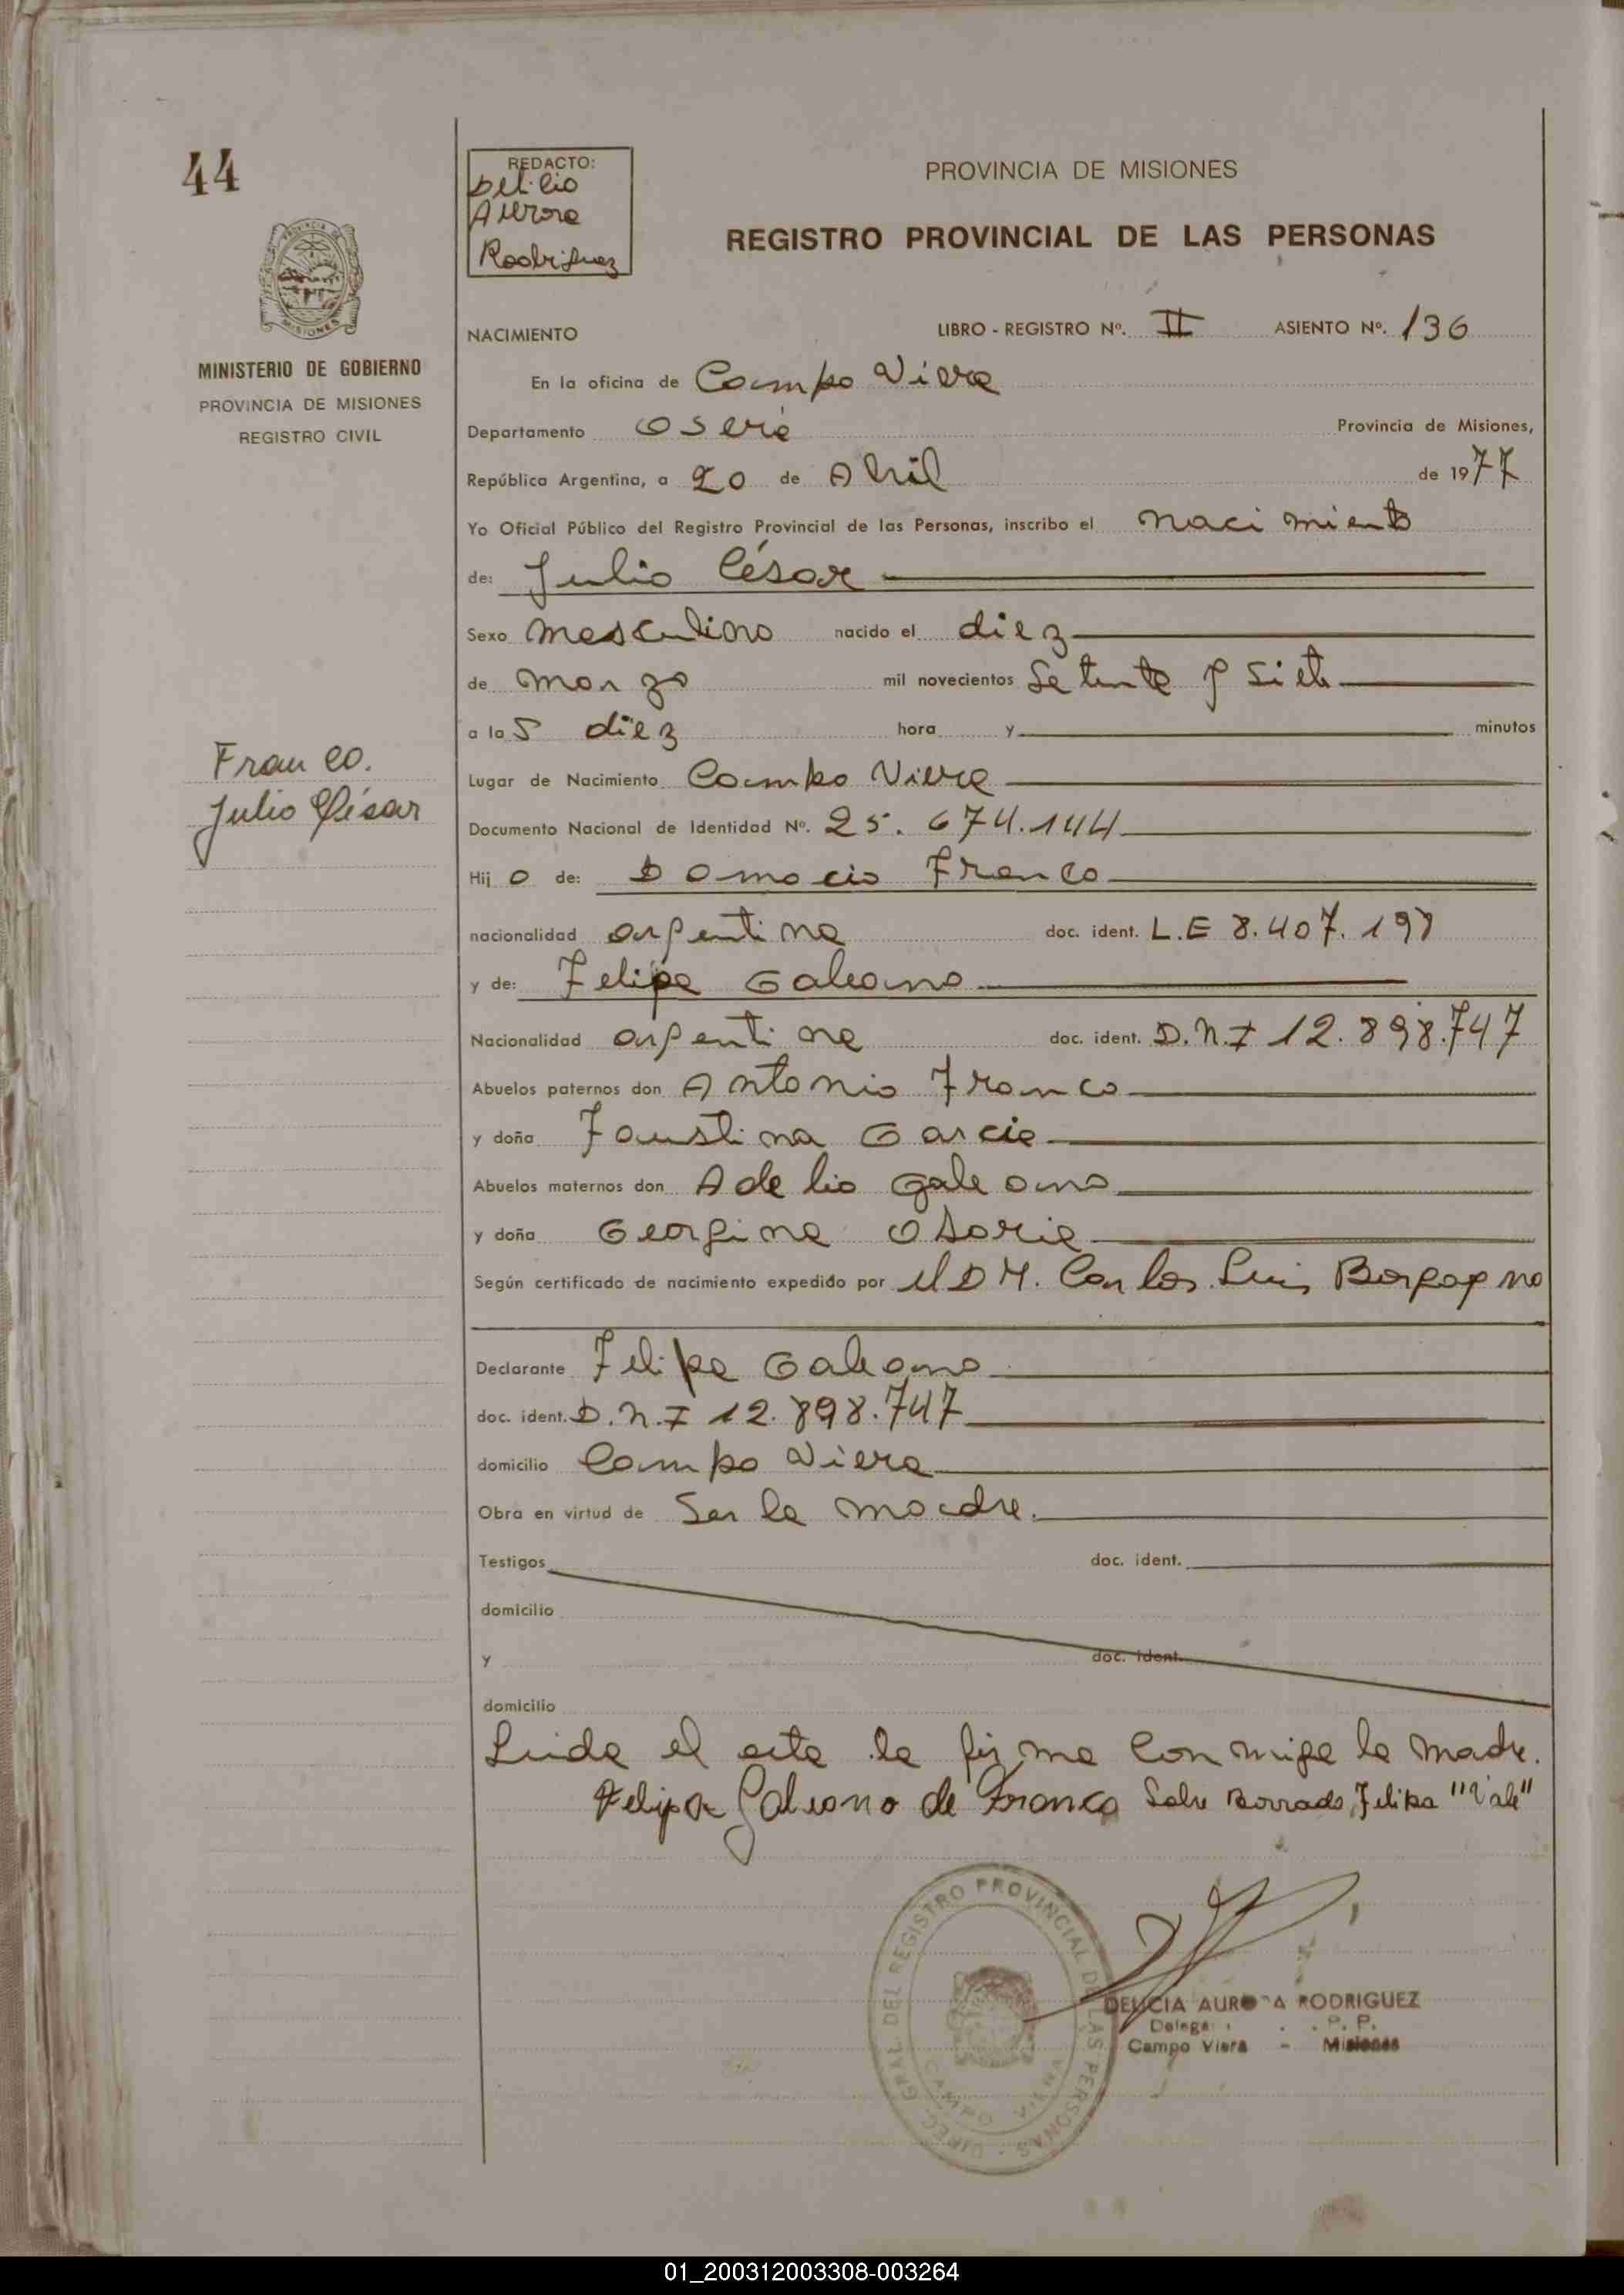 44
REDACTO:
Delicia
Aurora
Rodriguez
PROVINCIA DE MISIONES
REGISTRO PROVINCIAL DE LAS PERSONAS
MISIONES
MINISTERIO DE GOBIERNO
PROVINCIA DE MISIONES
REGISTRO CIVIL
NACIMIENTO LIBRO - REGISTRO Nº. II ASIENTO Nº. 136
En la oficina de Campo Viera
Departamento Oberá Provincia de Misiones,
República Argentina, a 20 de Abril de 1977
Yo Oficial Público del Registro Provincial de las Personas, inscribo el nacimiento
de: Julio César
Sexo masculino nacido el diez
de marzo mil novecientos setenta y siete
a las diez hora y minutos
Franco.
Julio César
Lugar de Nacimiento Campo Viera
Documento Nacional de Identidad Nº. 25.674.144
Hijo de: Damacio Franco
nacionalidad argentina doc. ident. L.E 8.407.198
y de: Felipa Galeano
Nacionalidad argentina doc. ident. D.N.I 12.898.747
Abuelos paternos don Antonio Franco
y doña Faustina Garcia
Abuelos maternos don Adelio Galeano
y doña Georgina Osorio
Según certificado de nacimiento expedido por el D M. Carlos Luis Borgogno
Declarante Felipa Galeano
doc. ident. D.N.I 12.898.747
domicilio Campo Viera
Obra en virtud de Ser la madre.
Testigos doc. ident.
domicilio
y doc. ident.
domicilio
Leida el acta la firma conmigo la madre.
Felipa Galeano de Franco Salv Borrado, Felipa "Vale"
DIREC. GRAL. DEL REGISTRO PROVINCIAL DE LAS PERSONAS
CAMPO VIERA
DELICIA AURORA RODRIGUEZ
P. P.
Campo Viera - Misiones
01_200312003308-003264